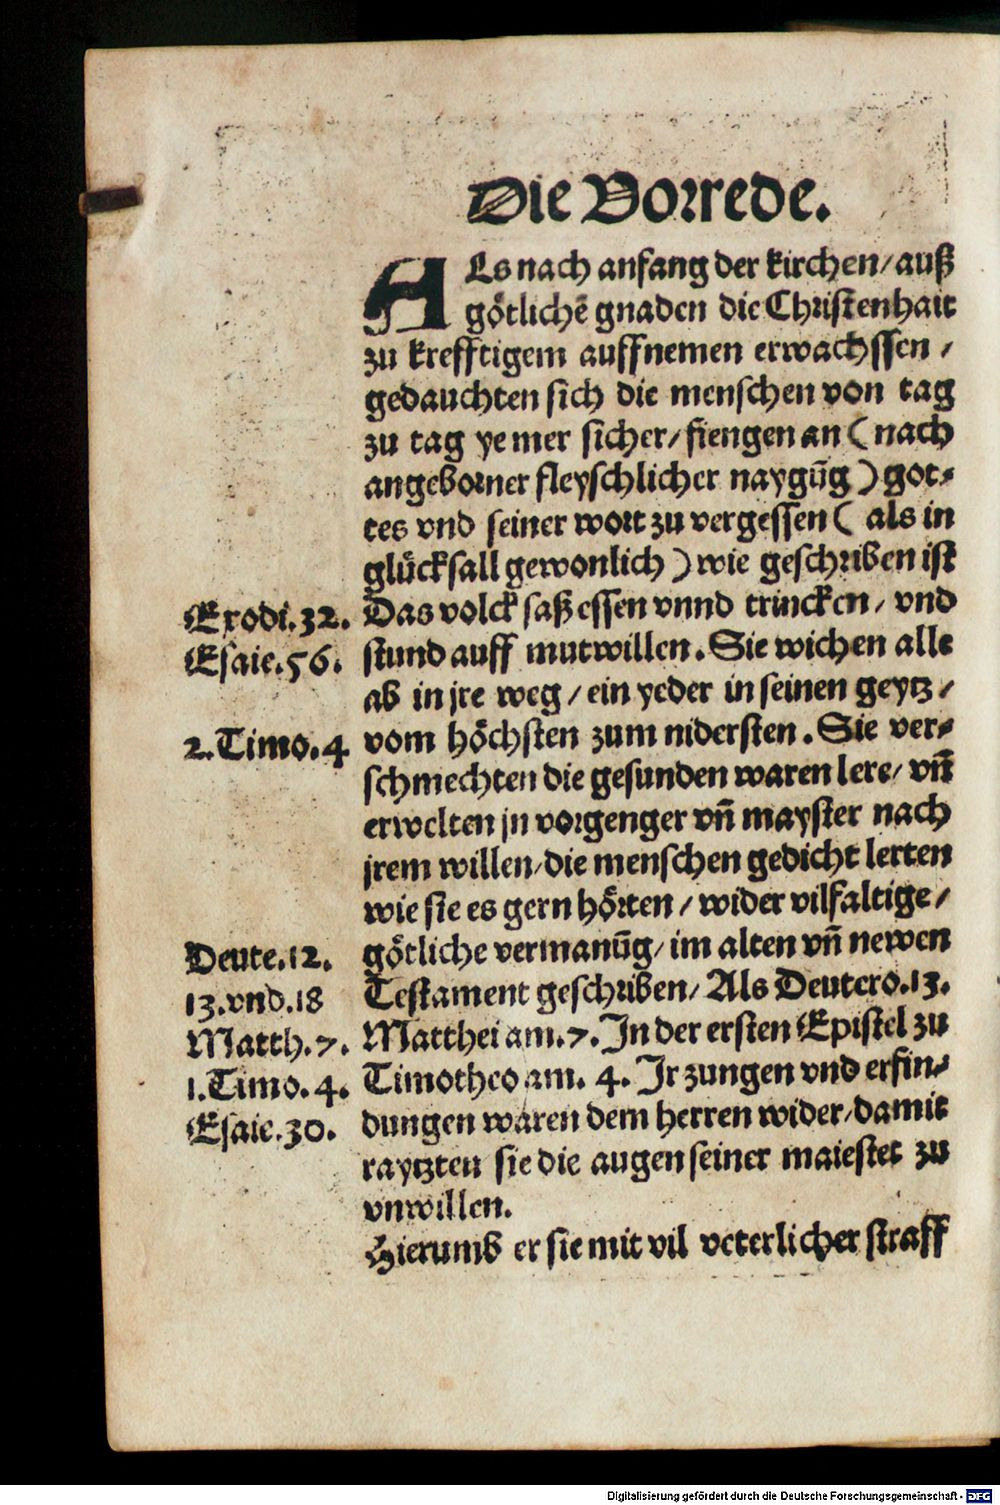 Die Vorrede.
ALs nach anfang der kirchen/ auß
götlichē gnaden die Christenhait
zu krefftigem auffnemen erwachssen /
gedauchten sich die menschen von tag
zu tag ye mer sicher/ fiengen an ( nach
angeborner fleyschlicher naygūg ) got-
tes vnd seiner wort zu vergessen ( als in
glücksall gewonlich ) wie geschriben ist
Exodi. 32. Das volck saß essen vnnd trincken / vnd
Esaie. 56. stund auff mutwillen. Sie wichen alle
ab in jre weg / ein yeder in seinen geytz /
2. Timo. 4 vom höchsten zum nidersten. Sie ver-
schmechten die gesunden waren lere/ vn̄
erwelten jn vorgenger vn̄ mayster nach
jrem willen/ die menschen gedicht lerten
wie sie es gern hörten / wider vilfaltige /
Deute. 12. götliche vermanūg/ im alten vn̄ newen
13. vnd. 18 Testament geschriben/ Als Deutero. 13.
Matth. 7. Matthei am. 7. In der ersten Epistel zu
1. Timo. 4. Timotheo am. 4. Ir zungen vnd erfin-
Esaie. 30. dungen waren dem herren wider/ damit
raytzten sie die augen seiner maiestet zu
vnwillen.
Hierumb er sie mit vil veterlicher straff
Digitalisierung gefördert durch die Deutsche Forschungsgemeinschaft - DFG